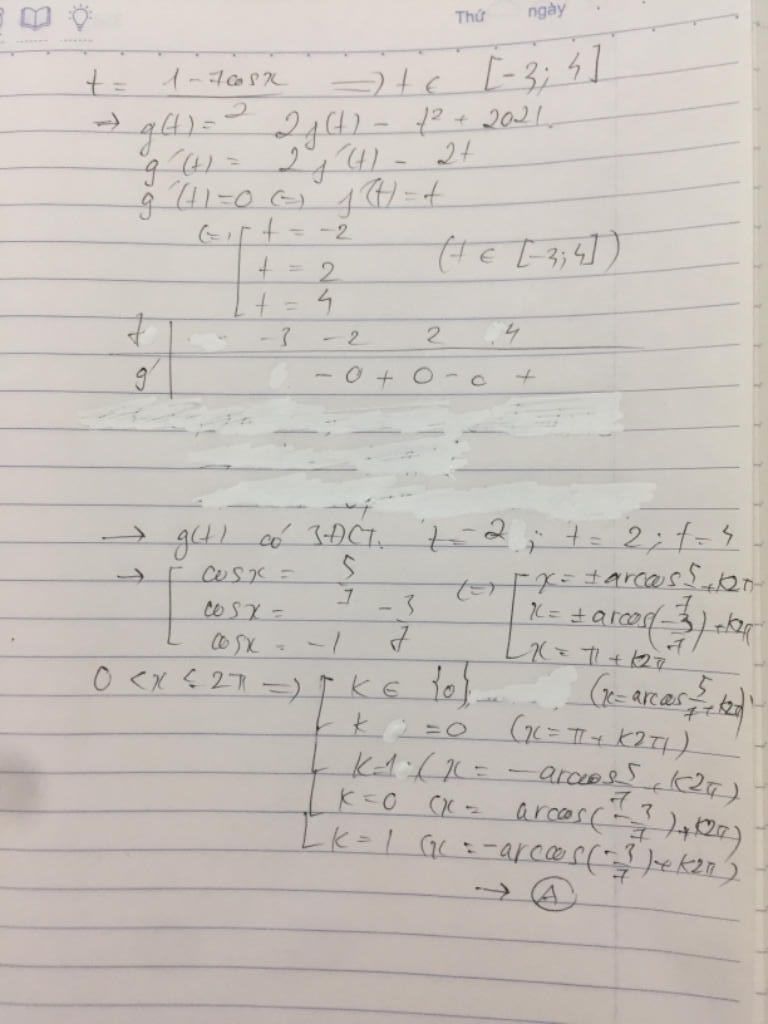 Thứ ngày
t = (1 - 7cosx)/2 => t ∈ [-3; 4]
→ g(t) = 2f(t) - t² + 2021.
g'(t) = 2f'(t) - 2t
g'(t) = 0 (=) f'(t) = t
(=) [ t = -2
t = 2 (t ∈ [-3; 4])
t = 4
t | -3 -2 2 4
g' | - 0 + 0 - 0 +
→ g(t) có 3 ĐCT. t = -2 ; t = 2 ; t = 4
→ [ cosx = 5/7 (=) [ x = ± arccos 5/7 + k2π
cosx = -3/7 x = ± arccos(-3/7) + k2π
cosx = -1 x = π + k2π
0 < x ≤ 2π => [ k ∈ {0} (x = arccos 5/7 + k2π)
k = 0 (x = π + k2π)
k = 1 (x = -arccos 5/7 + k2π)
k = 0 (x = arccos(-3/7) + k2π)
k = 1 (x = -arccos(-3/7) + k2π)
→ A